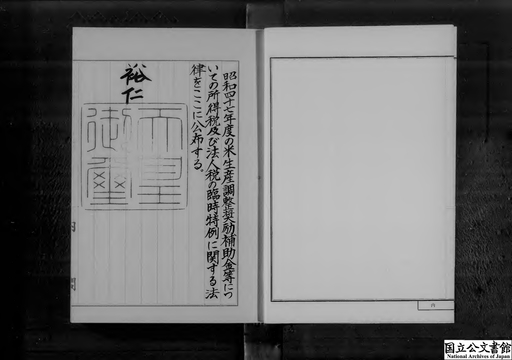 昭和四十七年度の米生産調整奨励補助金等につ
いての所得税及び法人税の臨時特例に関する法
律をここに公布する。
裕仁
天皇
御璽
国立公文書館
National Archives of Japan